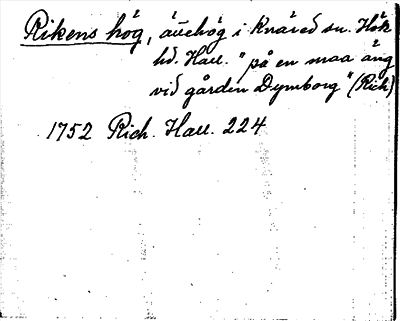 Rikens hög, ättehög i Knäred sn. Hök
hd. Hall. "på en smaa äng
vid gården Dymborg" (Rich)
1752 Rich. Hall. 224